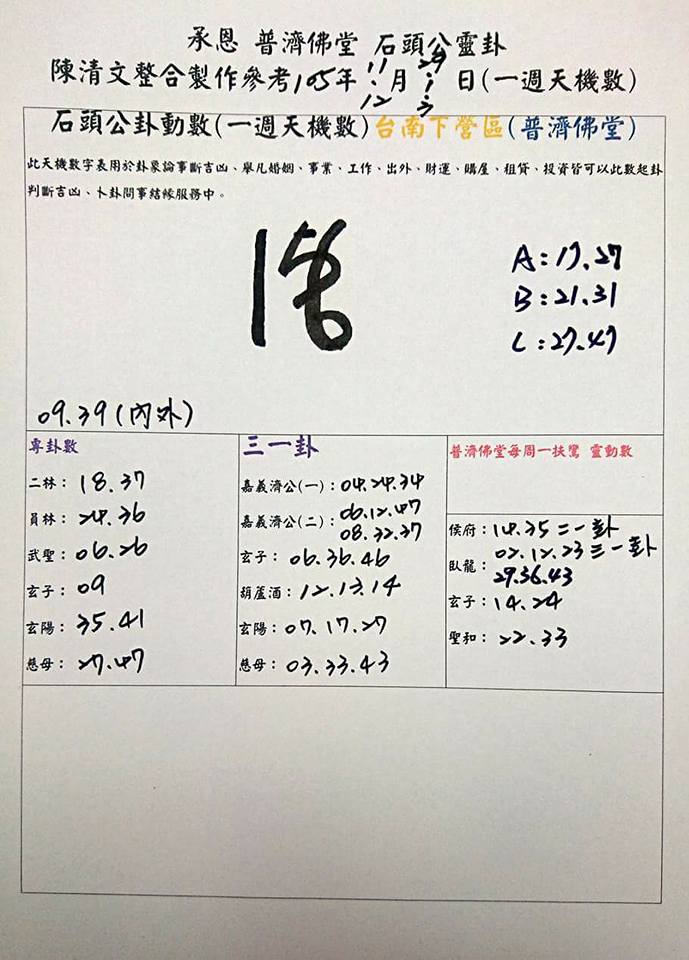 承恩 普濟佛堂 石頭公靈卦
陳清文整合製作參考105年11月29日(一週天機數)
12
石頭公卦動數(一週天機數)台南下營區(普濟佛堂)
此天機數字表用於卦象論事斷吉凶、舉凡婚姻、事業、工作、出外、財運、購屋、租貸、投資皆可以此數起卦
判斷吉凶、卜卦問事結緣服務中。
A:17.27
B:21.31
C:27.47
09.39(內外)
專卦數
二林:18.37
員林:24.36
武聖:06.26
玄子:09
玄陽:35.41
慈母:27.47
三一卦
嘉義濟公(一):04.24.34
嘉義濟公(二):06.12.47
08.32.37
玄子:06.36.46
葫蘆酒:12.13.14
玄陽:07.17.27
慈母:03.33.43
普濟佛堂每周一扶鸞 靈動數
侯府:14.35二一卦
臥龍:02.12.23三一卦
29.36.43
玄子:14.24
聖和:22.33